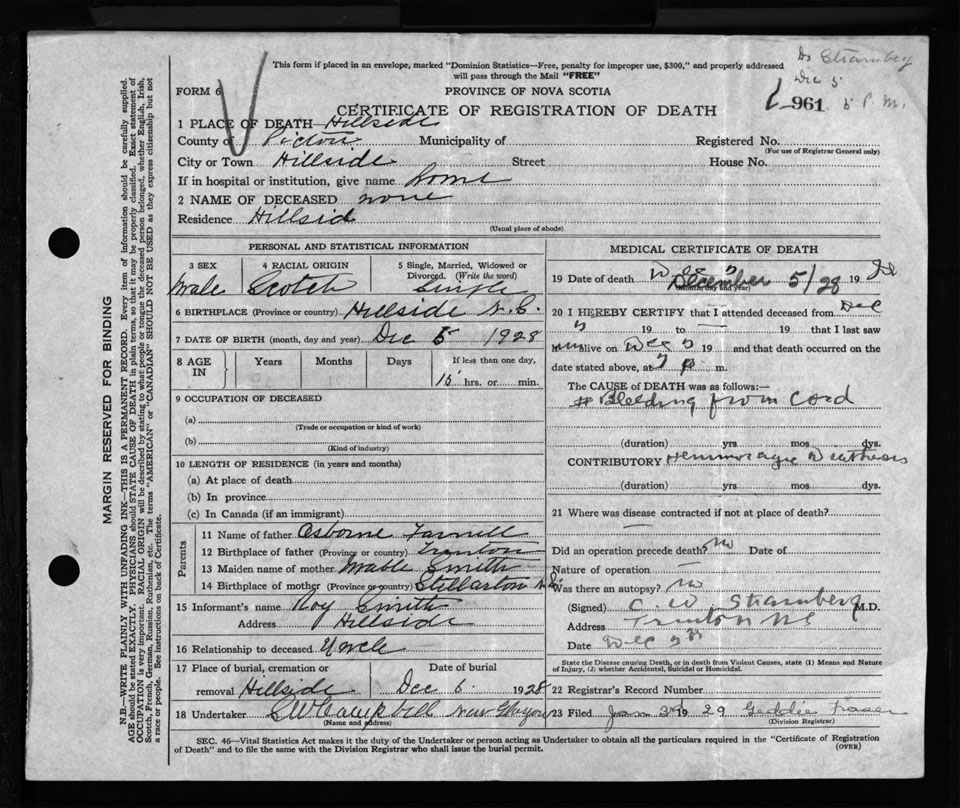 This form if placed in an envelope, marked "Dominion Statistics—Free, penalty for improper use, $300," and properly addressed
will pass through the Mail "FREE"
Dec 5
5 P. M.
FORM 6
PROVINCE OF NOVA SCOTIA
961
CERTIFICATE OF REGISTRATION OF DEATH
1 PLACE OF DEATH—Hillside
County of Pictou Municipality of Registered No.
(For use of Registrar General only)
City or Town Hillside Street House No.
If in hospital or institution, give name home
2 NAME OF DECEASED none
Residence Hillsid
(Usual place of abode)
PERSONAL AND STATISTICAL INFORMATION
3 SEX 4 RACIAL ORIGIN 5 Single, Married, Widowed or Divorced. (Write the word)
Male Scotch Single
6 BIRTHPLACE (Province or country) Hillside N.S.
7 DATE OF BIRTH (month, day and year) Dec 5 1928
8 AGE IN Years Months Days If less than one day,
15 hrs. or min.
9 OCCUPATION OF DECEASED
(a)
(Trade or occupation or kind of work)
(b)
(Kind of industry)
10 LENGTH OF RESIDENCE (in years and months)
(a) At place of death
(b) In province
(c) In Canada (if an immigrant)
Parents
11 Name of father Osborne
12 Birthplace of father (Province or country) Trenton
13 Maiden name of mother Mable Smith
14 Birthplace of mother (Province or country) Stellarton N.S.
15 Informant's name Roy Smith
Address Hillside
16 Relationship to deceased Uncle
17 Place of burial, cremation or removal Hillside
Date of burial
Dec 6. 1928
18 Undertaker Campbell New Glasgow
(Name and address)
MEDICAL CERTIFICATE OF DEATH
19 Date of death December 5/28 19
(Month, day and year)
20 I HEREBY CERTIFY that I attended deceased from Dec
5 19 to — 19 that I last saw
him alive on Dec 5 19 and that death occurred on the
date stated above, at 7 p. m.
The CAUSE of DEATH was as follows:—
Bleeding from Cord
(duration) yrs mos dys.
CONTRIBUTORY
(duration) yrs mos dys.
21 Where was disease contracted if not at place of death?
—
Did an operation precede death? no Date of
Nature of operation —
Was there an autopsy? no
(Signed) C. W Stramberg M.D.
Address Trenton NS
Date Dec 5th
State the Disease causing Death, or in death from Violent Causes, state (1) Means and Nature
of Injury, (2) whether Accidental, Suicidal or Homicidal.
22 Registrar's Record Number
23 Filed Jan 3rd 19 29 Geddie Fraser
(Division Registrar)
SEC. 46—Vital Statistics Act makes it the duty of the Undertaker or person acting as Undertaker to obtain all the particulars required in the "Certificate of Registration
of Death" and to file the same with the Division Registrar who shall issue the burial permit.
(OVER)
MARGIN RESERVED FOR BINDING
N.B.—WRITE PLAINLY WITH UNFADING INK—THIS IS A PERMANENT RECORD. Every item of information should be carefully supplied.
AGE should be stated EXACTLY. PHYSICIANS should STATE CAUSE OF DEATH in plain terms, so that it may be properly classified. Exact statement of
OCCUPATION is very important. RACIAL ORIGIN will be described by stating to what people or tongue the deceased person belonged, whether English, Irish,
Scotch, French, German, Russian, Ruthenian, etc. The terms "AMERICAN" or "CANADIAN" SHOULD NOT BE USED as they express citizenship but not
a race or people. See instructions on back of Certificate.